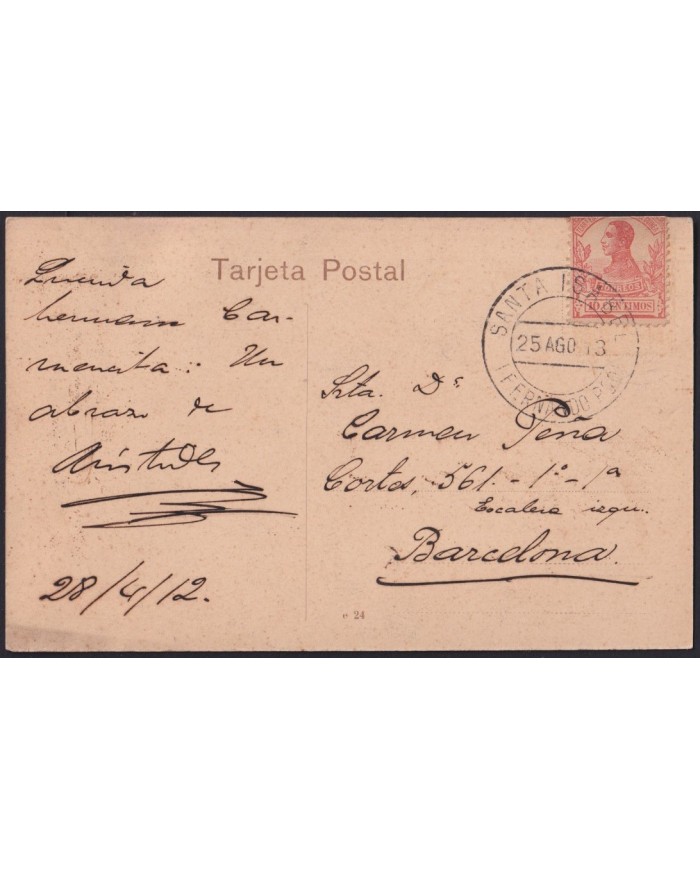 Tarjeta Postal
Querida
hermana Car-
mencita: Un
abrazo de
Arístides
28/4/12.
SANTA ISABEL
25 AGO 13
(FERNANDO POO)
10 CENTIMOS
Srta. Dª
Carmen Peña
Cortes, 561-1º-1ª
Escalera izqu.
Barcelona.
24